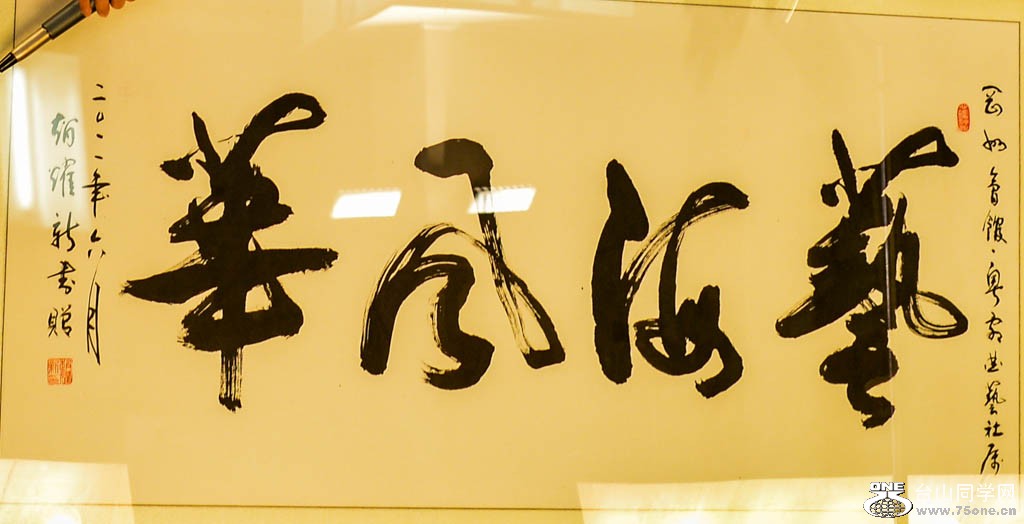 冈州會館·粤劇曲藝社属
藝海风華
二〇一一年六月
趙耀新書贈
ONE
台山同学网
www.75one.cn